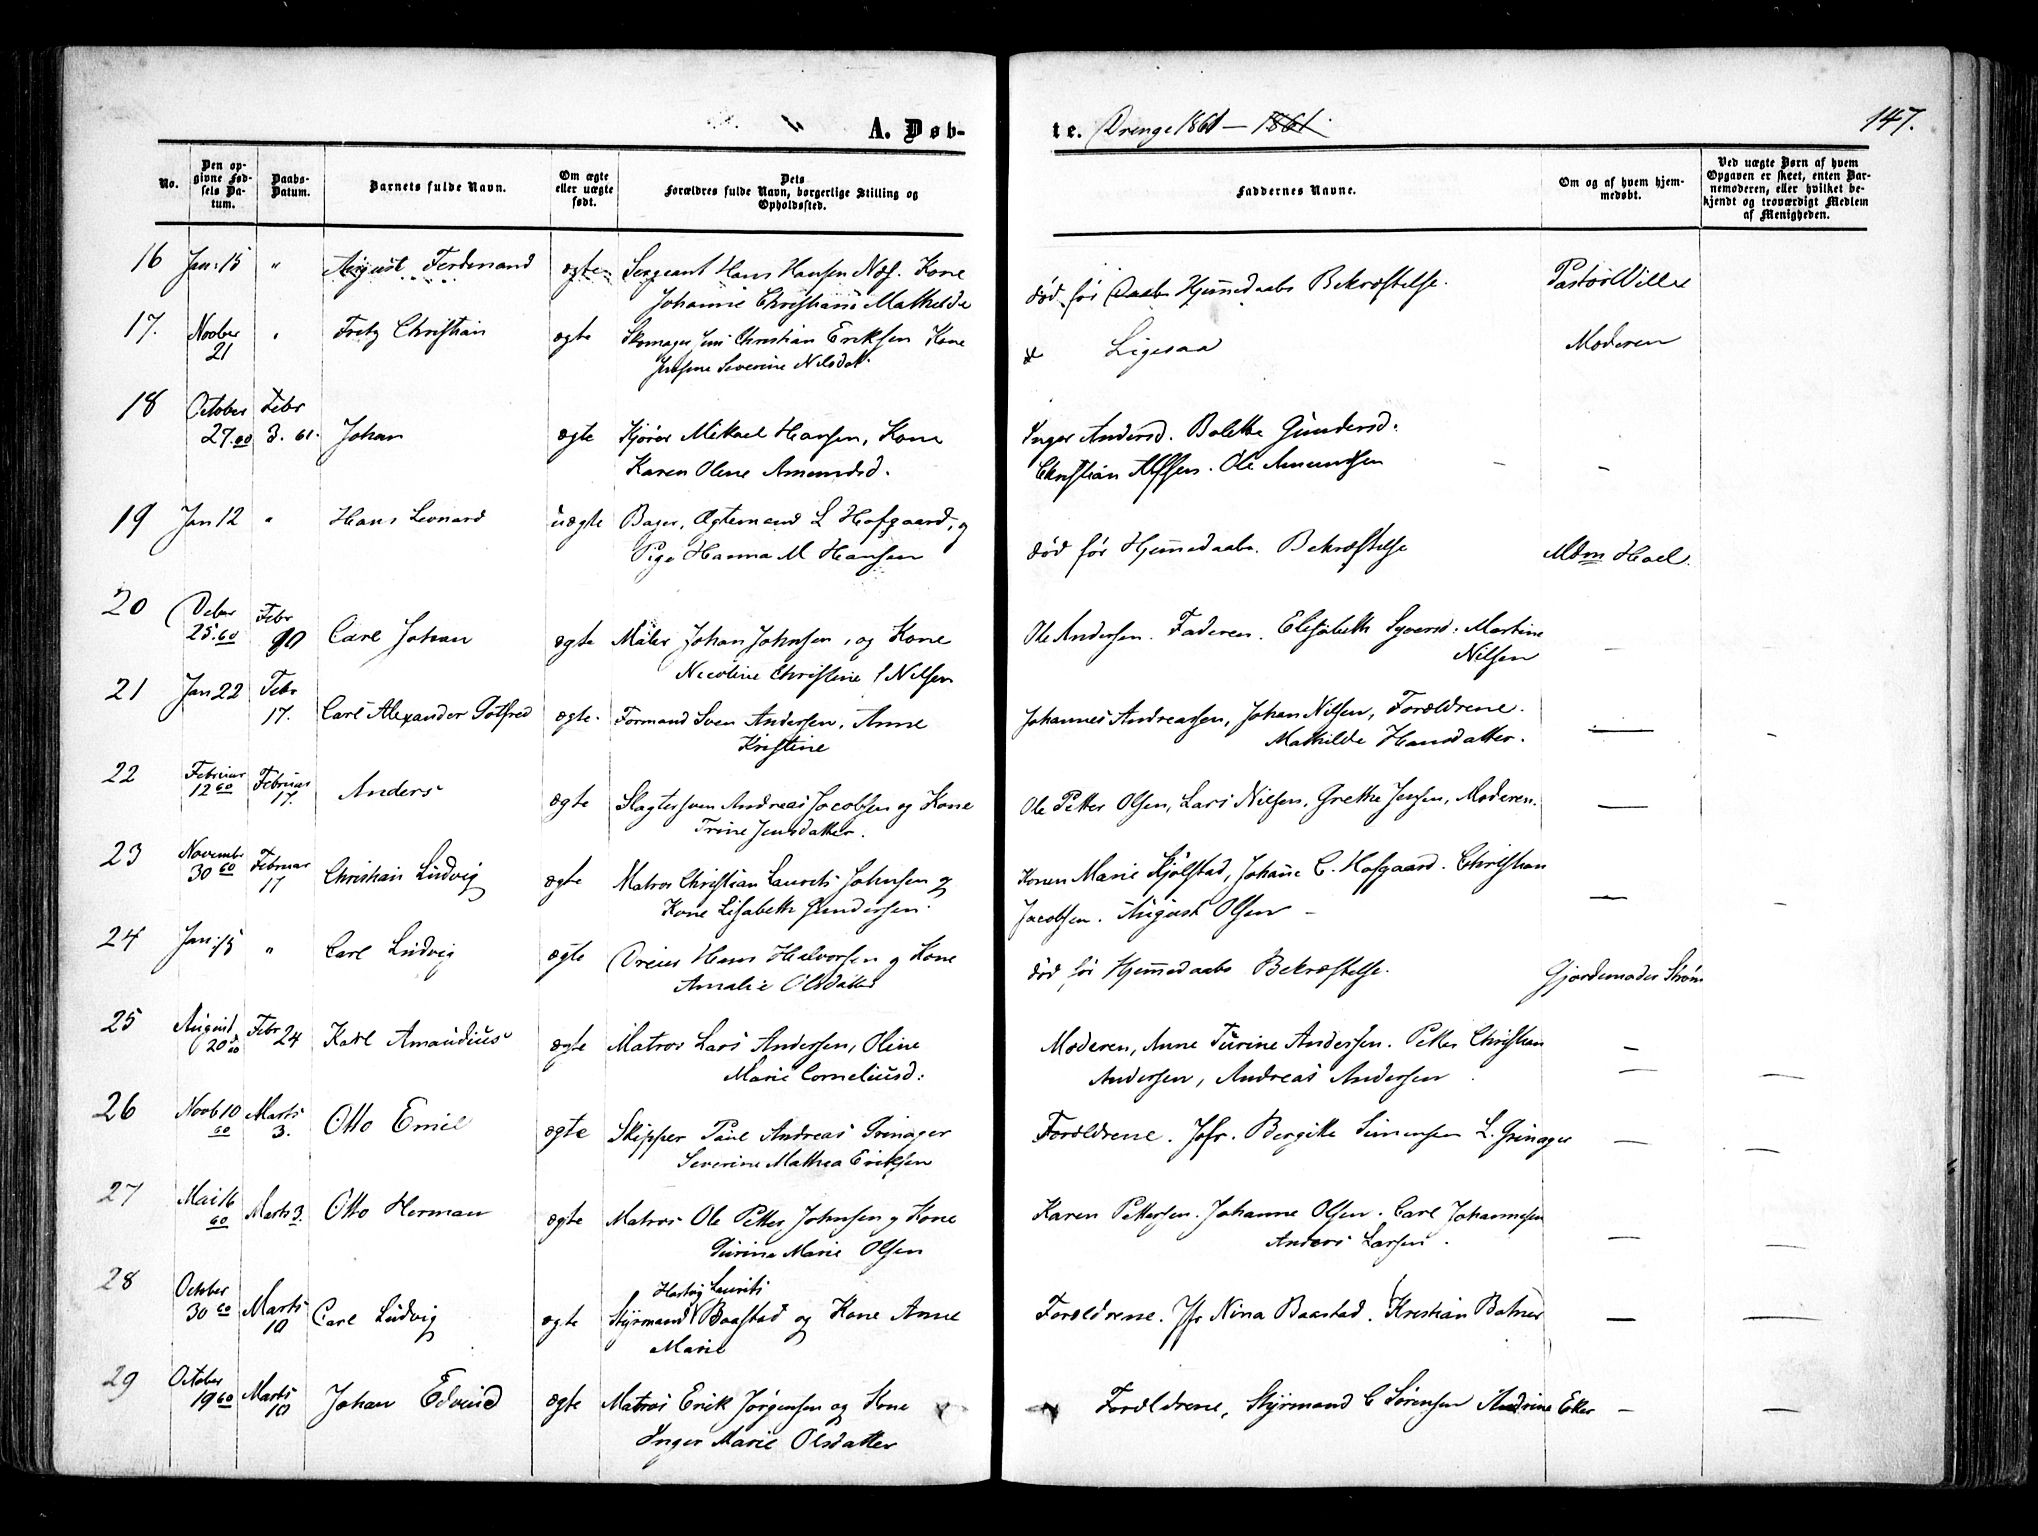 A. Døb-
te. Drenge 1861 — 1861.
147.
No.
Den op-
givne Fød-
sels Da-
tum.
Daabs-
Datum.
Barnets fulde Navn.
Om ægte
eller uægte
født.
Dets
Forældres fulde Navn, borgerlige Stilling og
Opholdssted.
Faddernes Navne.
Om og af hvem hjem-
medøbt.
Ved uægte Børn af hvem
Opgaven er skeet, enten Bar-
nemoderen, eller hvilket be-
kjendt og troværdigt Medlem
af Menigheden.
16 Jan: 15 " August Ferdinand ægte Sergeant Hans Hansen Næs. Kone
Johanne Christiane Mathilde
død før Daabs Hjemmedaabs Bekræftelse. Pastor Wille
17. Novber " Fritz Christian ægte Skomager Christian Eriksen Kone
21 Severine Nilsdat.
Ligesaa Moderen
18 October Febr
27.60 3. 61. Johan ægte Kjører Mikael Hansen, Kone
Karen Olene Amundsd.
Inger Andersd. Bolette Gundersd.
Christian Alfsen. Ole Amundsen - -
19 Jan 12 " Hans Leonard uægte Bager, Ægtemand L Hofgaard, og
Pige Hanna M Hansen
død før Hjemmedaabs. Bekræftelse Mdm Hoel.
20 Debr Febr
25.60 10 Carl Johan ægte Maler Johan Johnsen, og Kone
Nicoline Christine Nilsen
Ole Andersen. Faderen. Elisabeth Syversd. Martine
Nilsen -
21 Jan 22 Febr
17. Carl Alexander Gotfred ægte. Formand Sven Andersen, Anne
Kristine
Johannes Andreassen, Johan Nilsen, Forældrene.
Mathilde Hansdatter. — -
22 Februar Februar
12 60 17. Anders ægte Slagtersven Andreas Jacobsen og Kone
Trine Jensdatter.
Ole Petter Olsen, Lars Nilsen, Grethe Jensen, Moderen. —
23 Novembr Februar
30 60 17 Christian Ludvig ægte Matros Christian Laurits Johnsen og
Kone Lisabeth Gundersen.
Konen Marie Kjølstad, Johane C. Hofgaard. Christian
Jacobsen. August Olsen — — -
24 Jan: 15 " Carl Ludvig ægte Dreier Hans Halvorsen og Kone
Amalie Olsdatter
død før Hjemmedaabs Bekræftelse. Gjordemoder Strøm
25 August Febr 24
20 60 Karl Amandius ægte Matros Lars Andersen, Oline
Marie Corneliusd:
Moderen, Anne Turine Andersen. Petter Christian
Andersen, Andreas Andersen. — —
26 Novb 10 Marts
60 3. Otto Emil ægte Skipper Paul Andreas Grinager
Severine Mathea Eriksen
Forældrene. Jfr. Bergitte Simensen L. Grinager — —
27 Mai 16 Marts 3.
60 Otto Herman ægte Matros Ole Petter Johnsen og Kone
Marie Olsen
Karen Pettersen. Johanne Olsen. Carl Johannesen
Anders Larsen. — —
28 October Marts
30 60 10 Carl Ludvig ægte Styrmand Hartvig Laurits Baastad og Kone Anne
Marie
Forældrene. Jfr Nina Baastad. Kristian Bolner — —
29 October Marts
19 60 10 Johan Edvard ægte Matros Erik Jørgensen og Kone
Inger Marie Olsdatter
Forældrene, Styrmand C Sørensen Andrine Eller — —